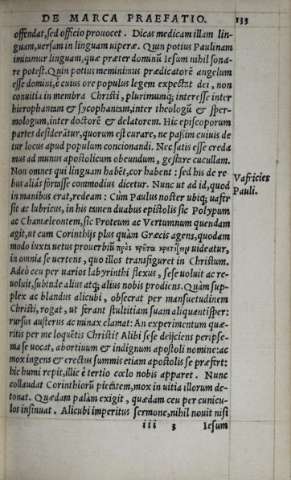 DE MARCA PRAEFATIO. 133
offendat, sed officio prouocet. Dicas medicam illam lin-
guam, uersam in linguam uiperæ. Quin potius Paulinam
imitemur linguam, quæ præter dominū Iesum nihil sona-
re potest. Quin potius meminimus prædicatorē angelum
esse domini, è cuius ore populus legem expectat dei, non
conuitia in membra Christi, plurimumq; interesse inter
hierophantum & sycophantam, inter theologū & sper-
mologum, inter doctorē & delatorem. Hic episcoporum
partes desideratur, quorum est curare, ne passim cuiuis de
tur locus apud populum concionandi. Nec satis esse creda
mus ad munus apostolicum obeundum, gestare cucullam.
Non omnes qui linguam habēt, cor habent : sed his de re-
bus aliâs fortasse commodius dicetur. Nunc ut ad id, quod
in manibus erat, redeam : Cùm Paulus noster ubiq; uafer
Vafricies
Pauli.
sit ac lubricus, in his tamen duabus epistolis sic Polypum
ac Chamæleontem, sic Proteum ac Vertumnum quendam
agit, ut cum Corinthijs plus quàm Græcis agens, quodam
modo iuxta uetus prouerbiū πρὸς κρῆτα κρητίζειν uideatur,
in omnia se uertens, quo illos transfiguret in Christum.
Adeò ceu per uarios labyrinthi flexus, sese uoluit ac re-
uoluit, subinde alius atq; alius nobis prodiens. Quàm sup-
plex ac blandus alicubi, obsecrat per mansuetudinem
Christi, rogat, ut ferant stultitiam suam aliquantisper:
rursus austerus ac minax clamat: An experimentum quæ-
ritis per me loquētis Christi? Alibi sese deijciens peripse-
ma se uocat, abortiuum & indignum apostoli nomine: ac
mox ingens & erectus summis etiam apostolis se præfert:
hic humi repit, illic è tertio cœlo nobis apparet. Nunc
collaudat Corinthiorū pietatem, mox in uitia illorum de-
tonat. Quædam palàm exigit, quædam ceu per cunicu-
los insinuat. Alicubi imperitus sermone, nihil nouit nisi
iii 3 Iesum